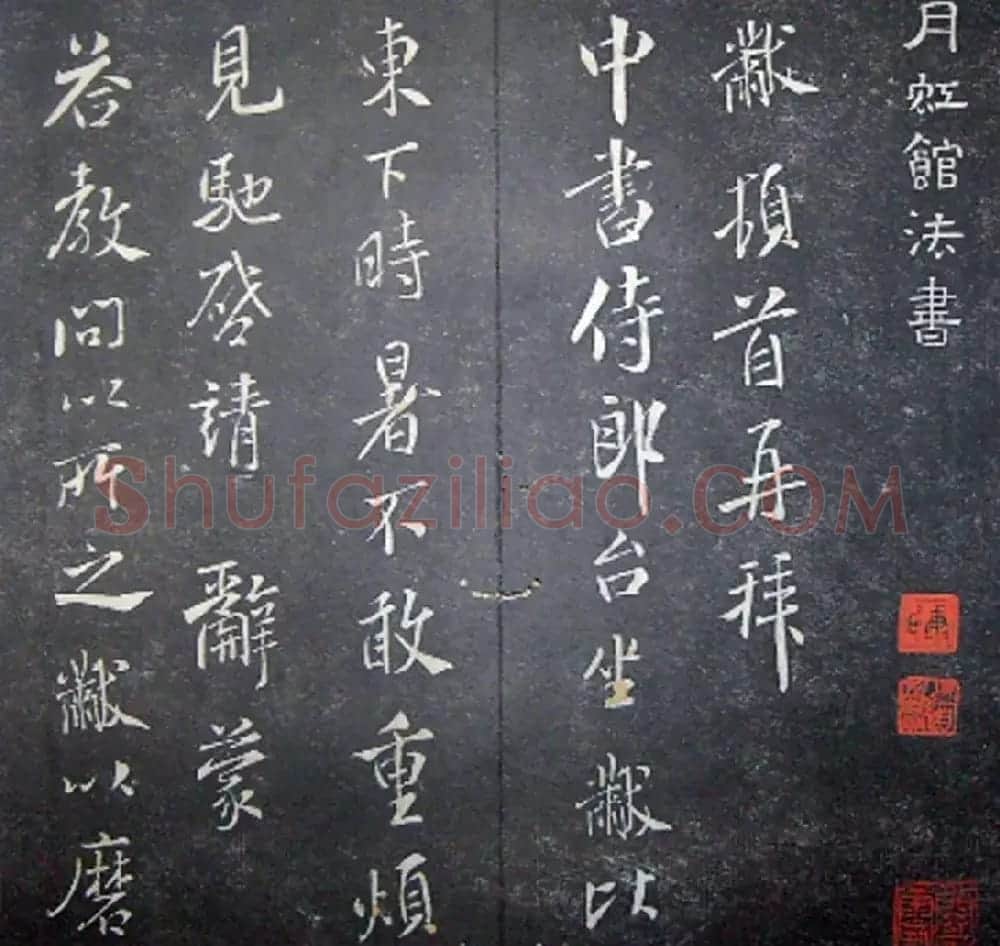 月虹館法書
黻頓首再拜
中書侍郎台坐黻比
東下時暑不敢重煩
見馳啓請 辭蒙
荅教問以所之黻以磨
Shufaziliao.COM